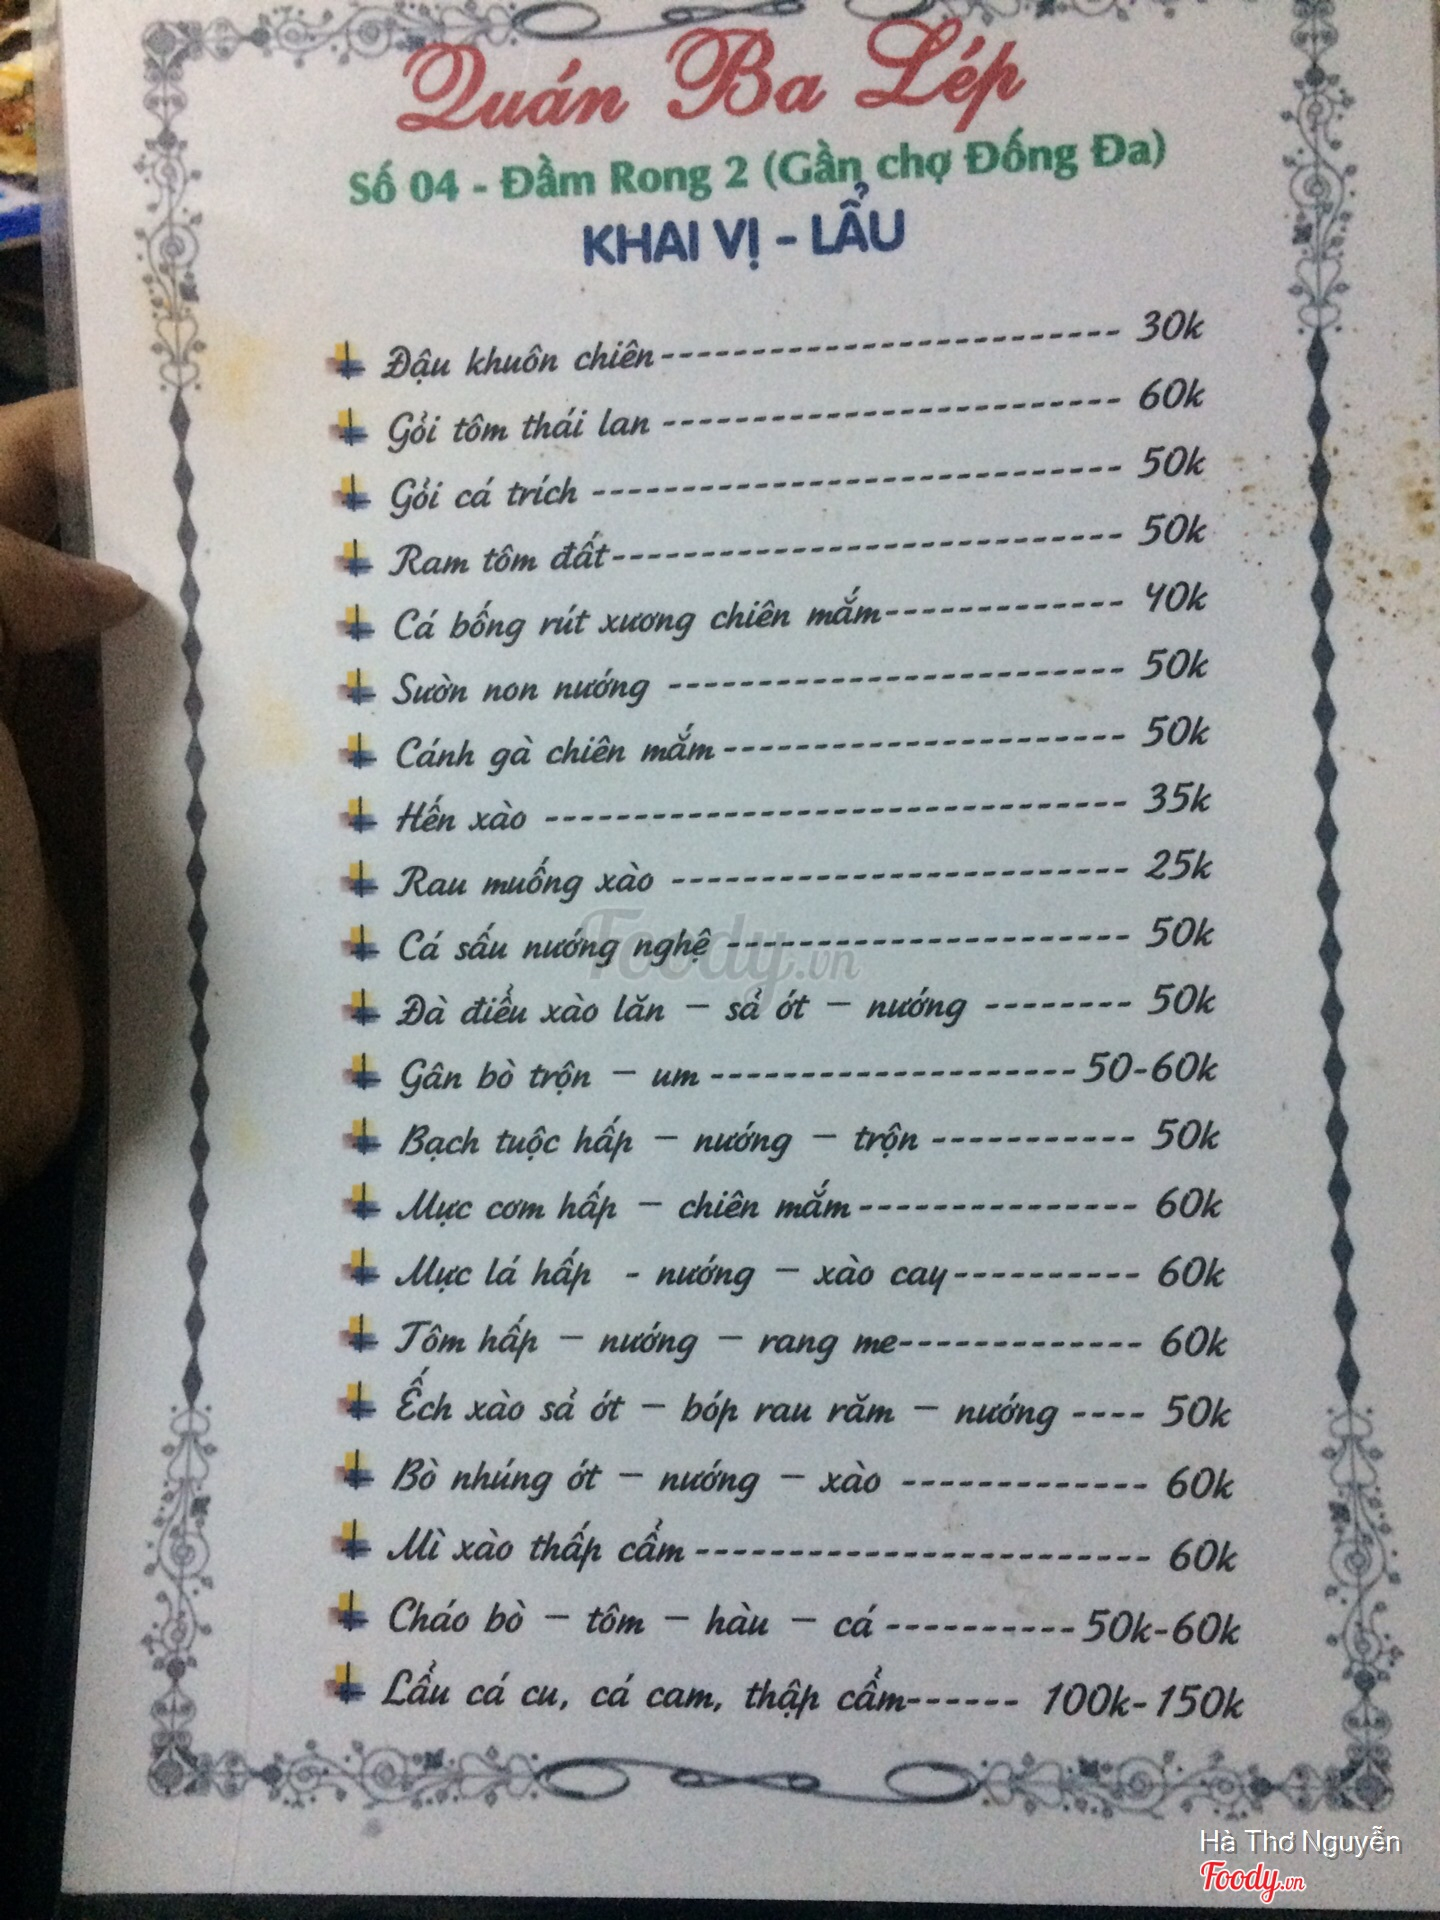 Quán Ba Lép
Số 04 - Đầm Rong 2 (Gần chợ Đống Đa)
KHAI VỊ - LẨU
Đậu khuôn chiên------------------------- 30k
Gỏi tôm thái lan ------------------------- 60k
Gỏi cá trích ----------------------------- 50k
Ram tôm đất---------------------------- 50k
Cá bống rút xương chiên mắm------------- 40k
Sườn non nướng ------------------------- 50k
Cánh gà chiên mắm---------------------- 50k
Hến xào -------------------------------- 35k
Rau muống xào ------------------------- 25k
Cá sấu nướng nghệ ---------------------- 50k
Đà điểu xào lăn – sả ớt – nướng -------- 50k
Gân bò trộn – um --------------------50-60k
Bạch tuộc hấp – nướng – trộn ----------- 50k
Mực cơm hấp – chiên mắm--------------- 60k
Mực lá hấp - nướng – xào cay---------- 60k
Tôm hấp – nướng – rang me------------- 60k
Ếch xào sả ớt – bóp rau răm – nướng ---- 50k
Bò nhúng ớt – nướng – xào ------------- 60k
Mì xào thấp cẩm ------------------------ 60k
Cháo bò – tôm – hàu – cá ----------50k-60k
Lẩu cá cu, cá cam, thập cẩm------ 100k-150k
Foody.vn
Hà Thơ Nguyễn
Foody.vn